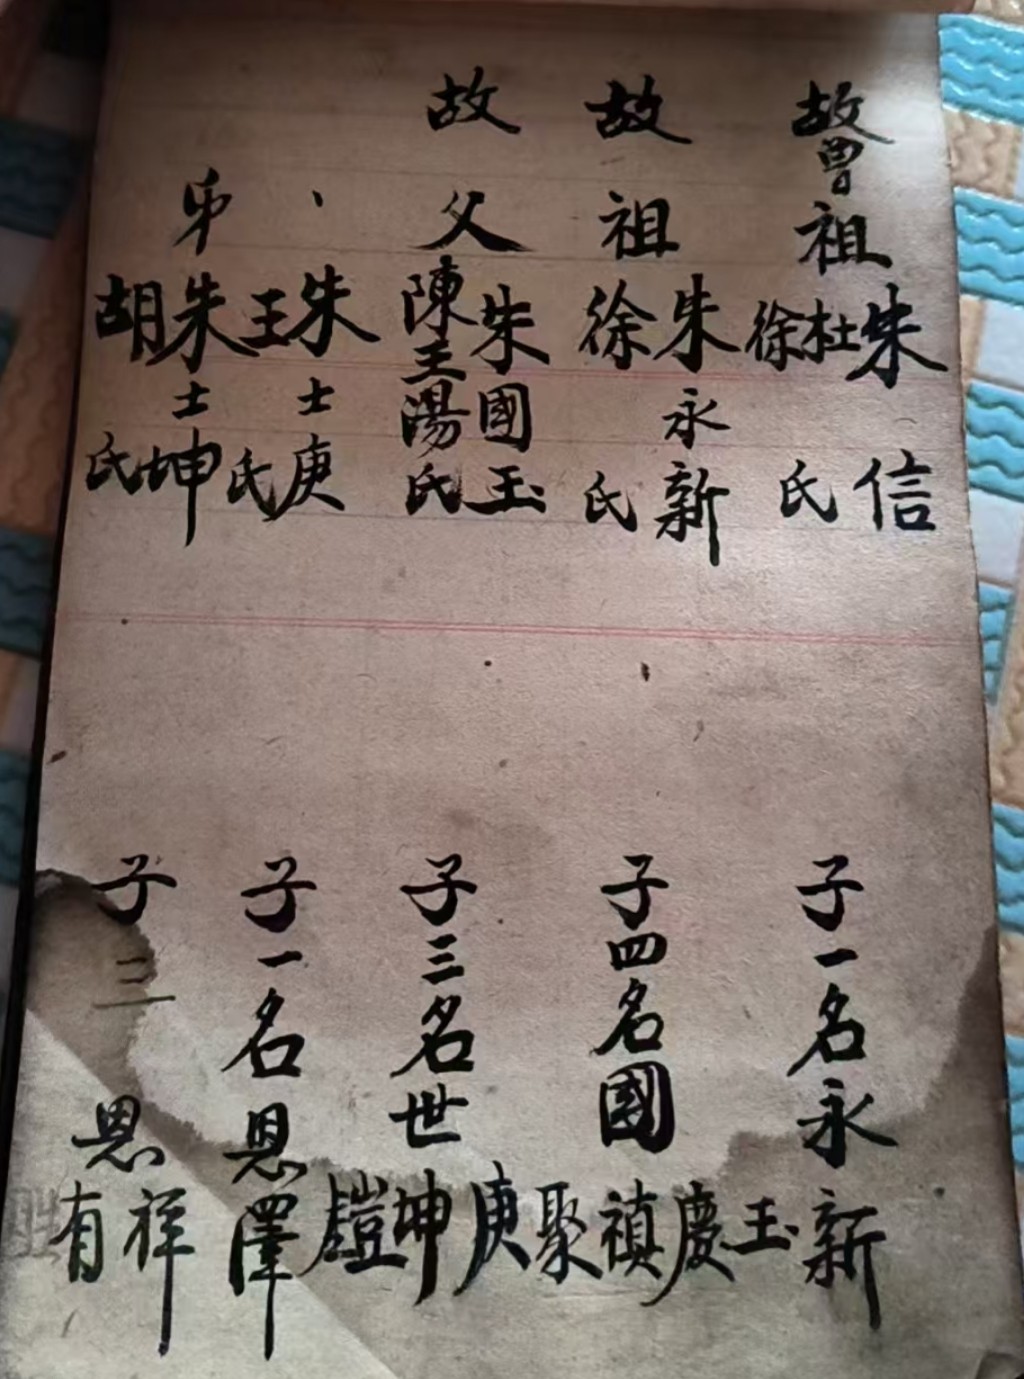 故曾祖朱信
杜徐氏
子一名永新
故祖朱永新
徐氏
子四名國玉慶禎聚
故父朱國玉
陳王湯氏
子三名世庚坤
朱士庚
王氏
子一名恩澤
弟朱士坤
胡氏
子二
恩祥有